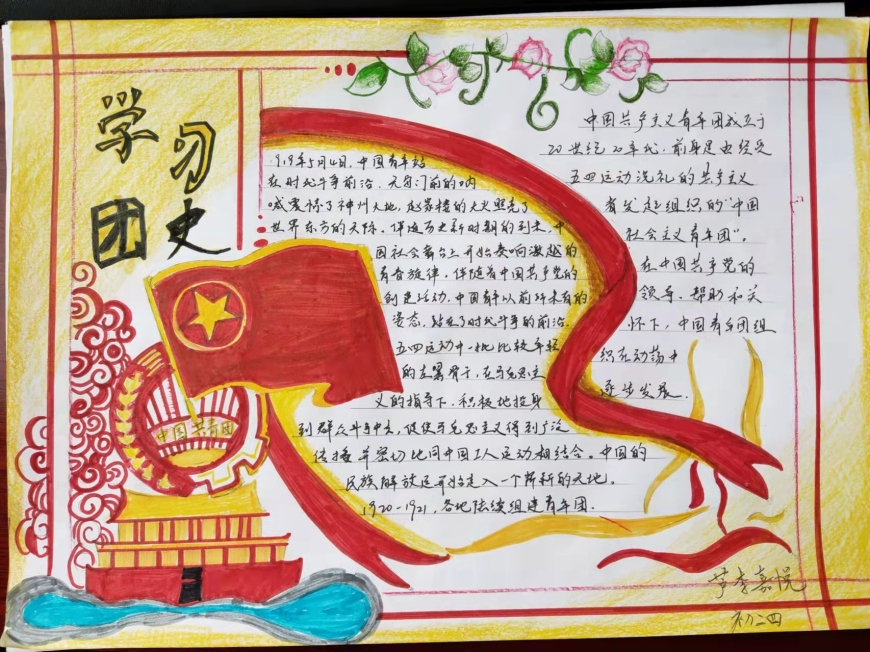 学习
团史
1919年5月4日,中国青年站
在时代斗争前沿,天安门前的呐
喊震惊了神州大地,赵家楼的大火照亮了
世界东方的天际。伴随历史新时期的到来,中
国社会舞台上开始奏响激越的
青春旋律。伴随着中国共产党的
创建活动,中国青年以前所未有的
姿态,站在了时代斗争的前沿。
五四运动中一批比较年轻
的左翼骨干,在马克思主
义的指导下,积极地投身
到群众斗争中去,促使马克思主义得到广泛
传播并密切地同中国工人运动相结合。中国的
民族解放运开始走入一个崭新的天地。
1920-1921,各地陆续组建青年团.
中国共产主义青年团成立于
20世纪20年代,前身是由经受
五四运动洗礼的共产主义
者发起组织的“中国
社会主义青年团”。
在中国共产党的
领导、帮助和关
怀下,中国青年团组
织在动荡中
逐步发展.
中国共青团
李嘉悦
初二四